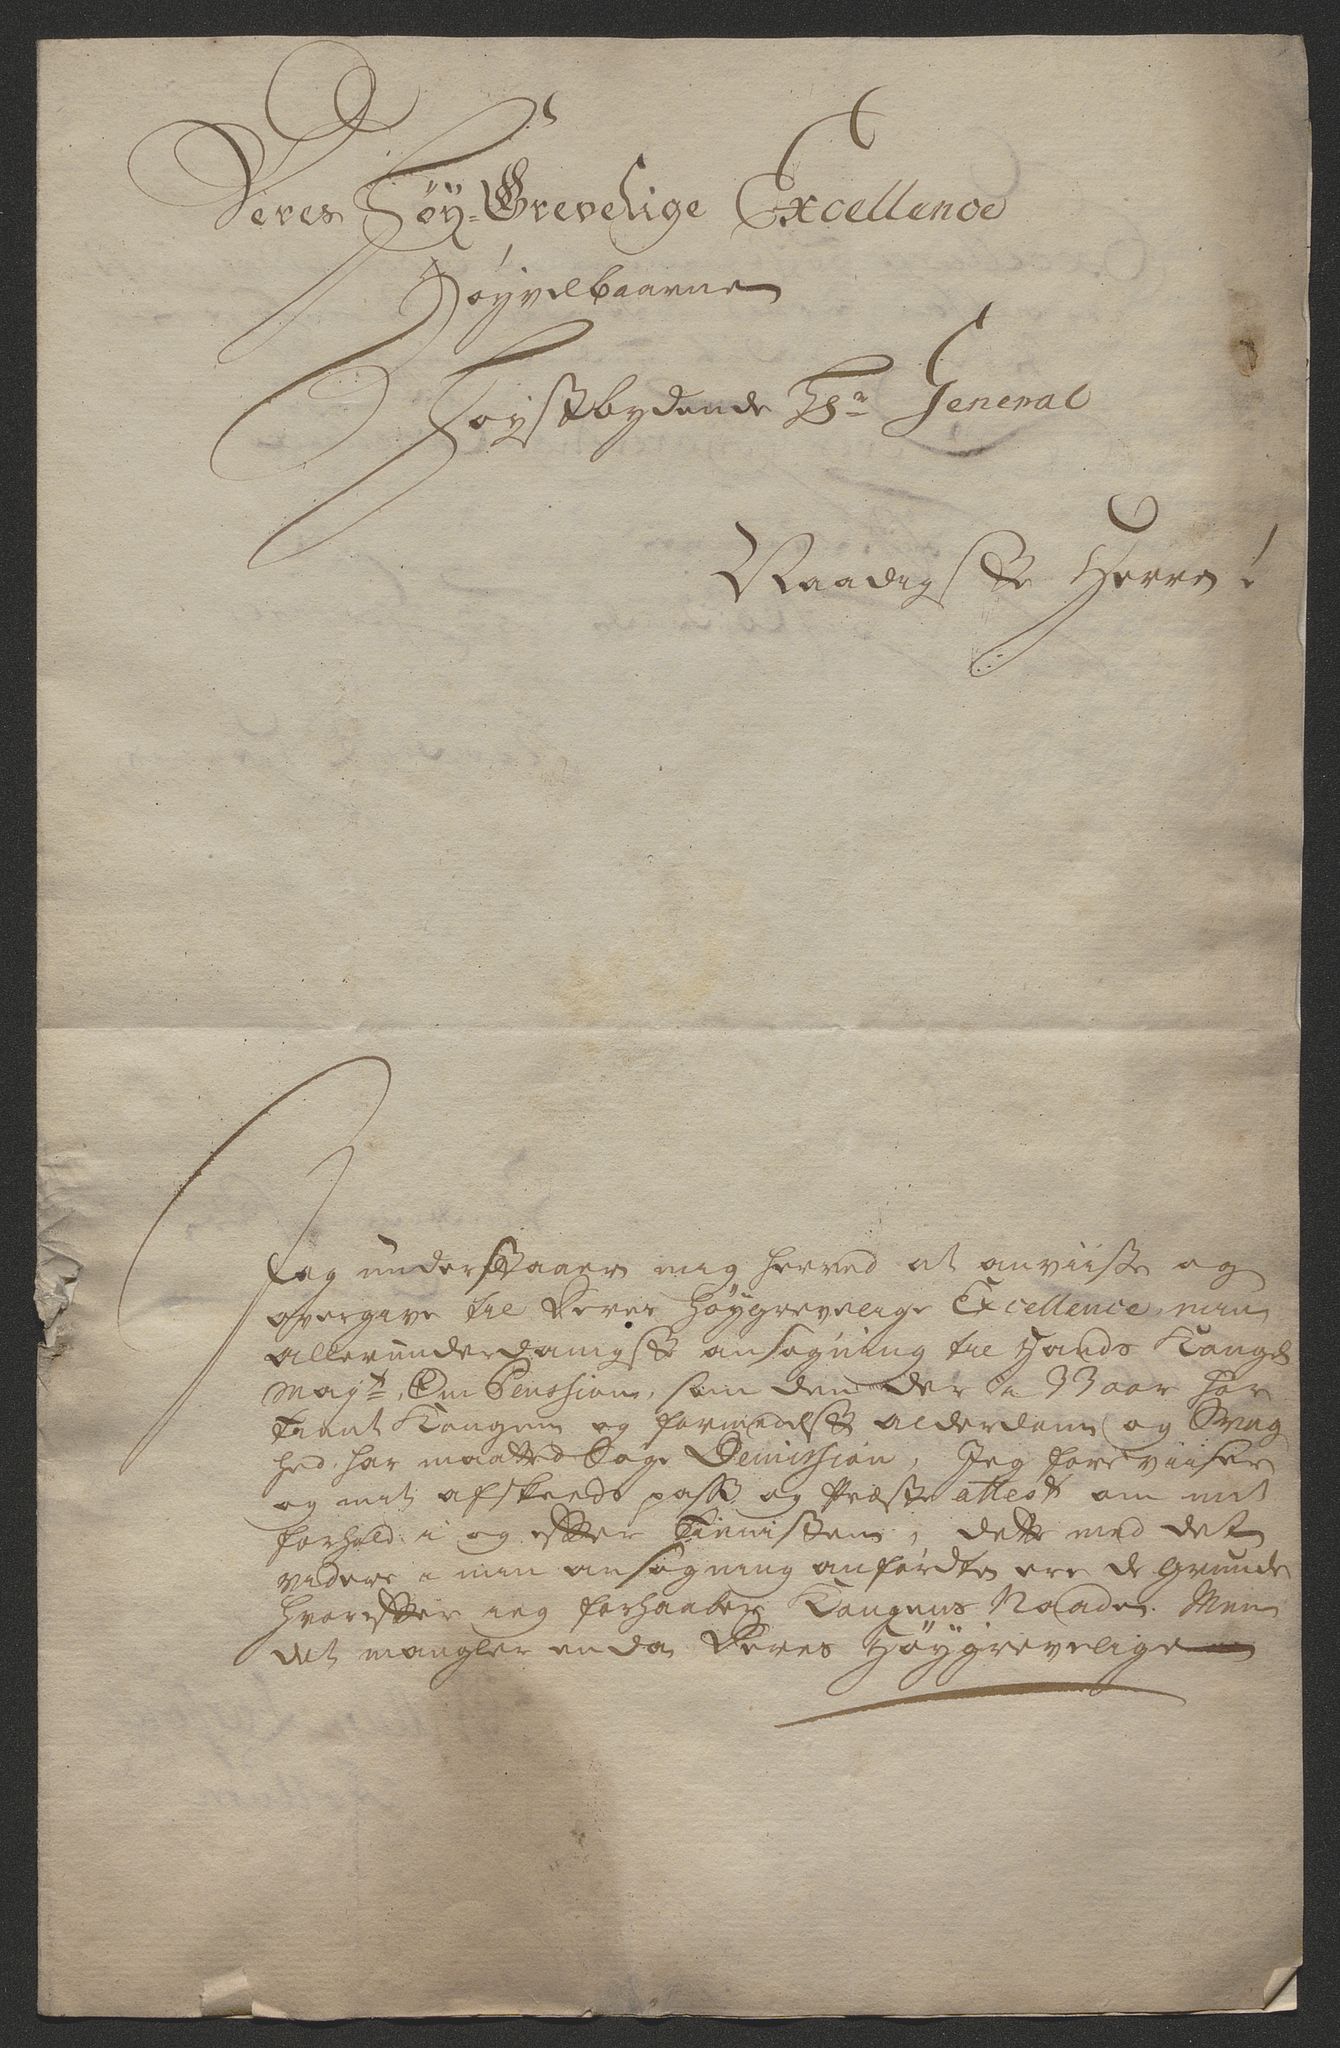 Deres Høy-Grevelige Excellence
Høyvelbaarne
Høystbydende Hr General
Naadigste Herre!
Jeg understaaer mig herved at anviiste og
overgive til Deres Høygrevelige Excellence, min
allerunderdanigste ansøgning til Hands Kongl
Mayt. Om Penssion, som den der i 33 aar har
tient Kongen og formedelst alderdom og Svag
hed har maatted Søge Demission, Jeg foreviiser
og mit afskeeds pass og Præste attest om mit
forhold i og efter Tienisten, dette med det
videre i min ansøgning anførdte ere de Grunde
hvorefter ieg forhaaber Kongens Naade. Men
det mangler enda Deres Høygrevelige